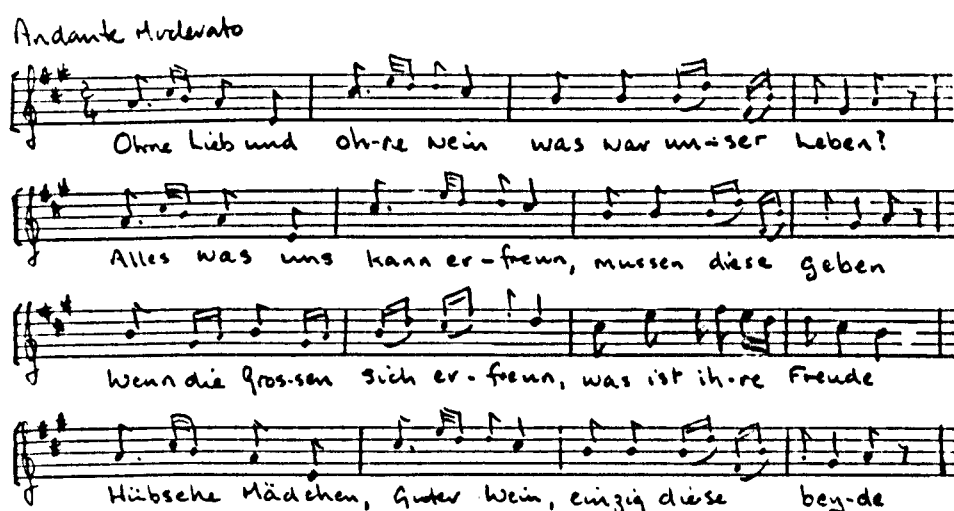 Andante Moderato
2/4
Ohne Lieb und oh-ne Wein was war un-ser Leben?
Alles was uns kann er-freun, mussen diese geben
Wenn die Gros-sen sich er-freun, was ist ih-re Freude
Hübsche Mädchen, Guter Wein, einzig diese bey-de